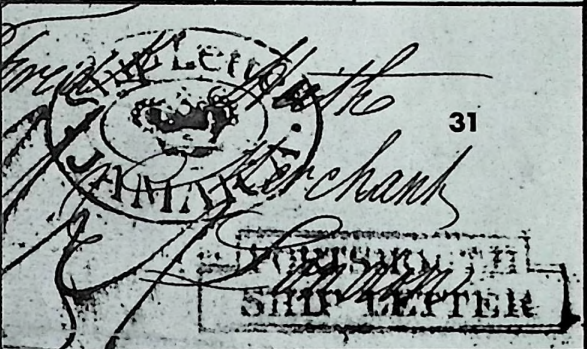 SHIP LETTER
JAMAICA
31
Merchant
London
PORTSMOUTH
SHIP LETTER